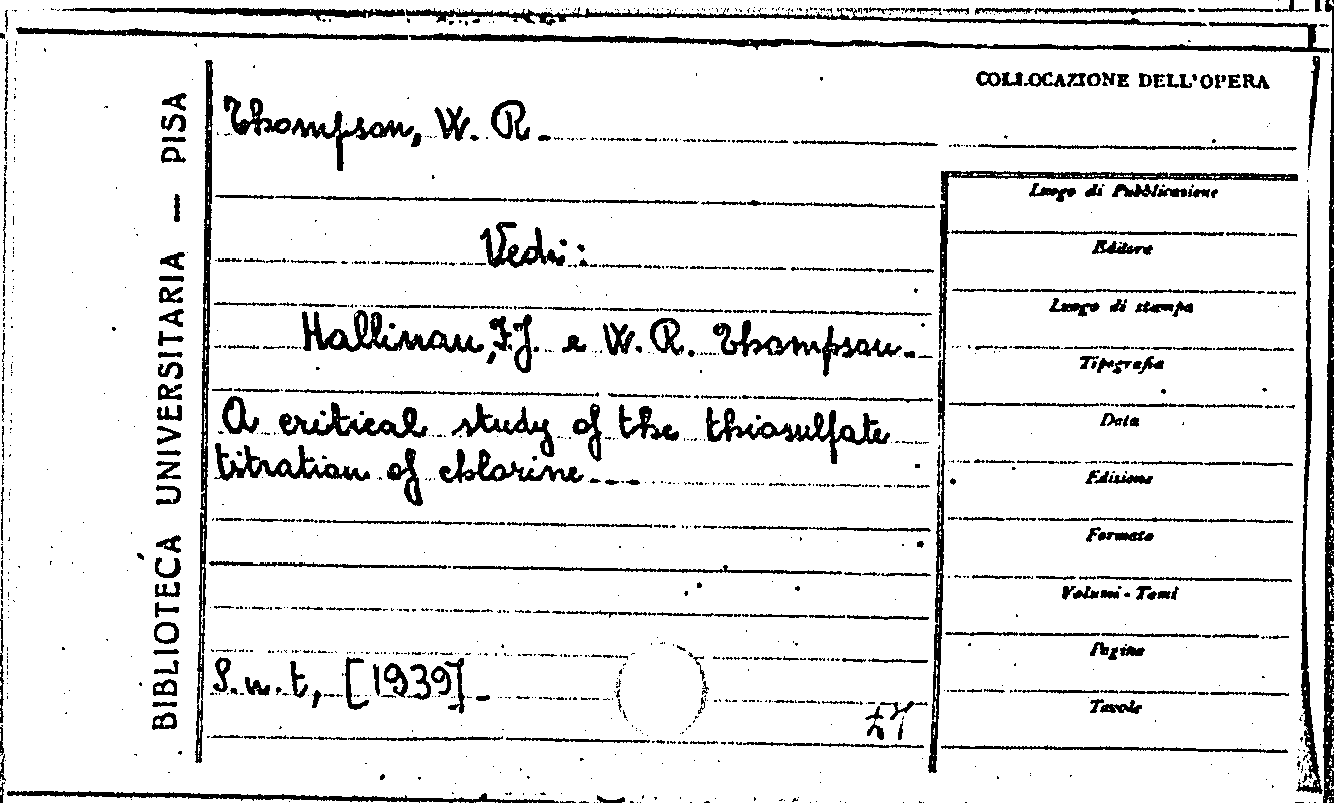 BIBLIOTECA UNIVERSITARIA — PISA
COLLOCAZIONE DELL'OPERA
Thompson, W. R.
Vedi:
Hallinan, F.J. e W. R. Thompson.
A critical study of the thiosulfate
titration of chlorine...
S.n.t, [1939].
Luogo di Pubblicazione
Editore
Luogo di stampa
Tipografia
Data
Edizione
Formato
Volumi - Tomi
Pagine
Tavole